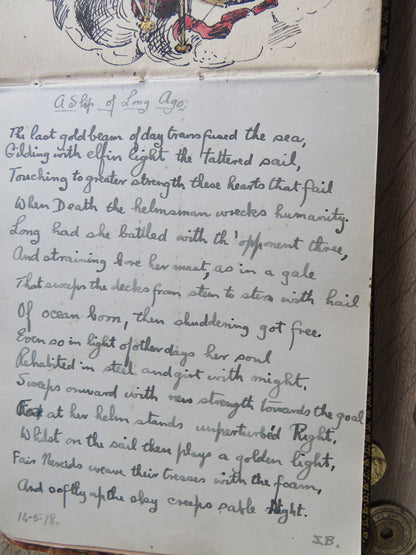 A Ship of Long Ago.
The last gold beam of day transfused the sea,
Gilding with elfin light the tattered sail,
Touching to greater strength these hearts that fail
When Death the helmsman wrecks humanity.
Long had she battled with th' opponent three,
And straining bore her mast, as in a gale
That sweeps the decks from stem to stern with hail
Of ocean born, then shuddering got free.
Even so in light of other days her soul
Rehabited in steel and girt with might,
Sweeps onward with new strength towards the goal
at her helm stands unperturbéd Right,
Whilst on the sail there plays a golden light,
Fair Nereids weave their tresses with the foam,
And softly up the sky creeps sable Night.
14-5-18.
I.B.